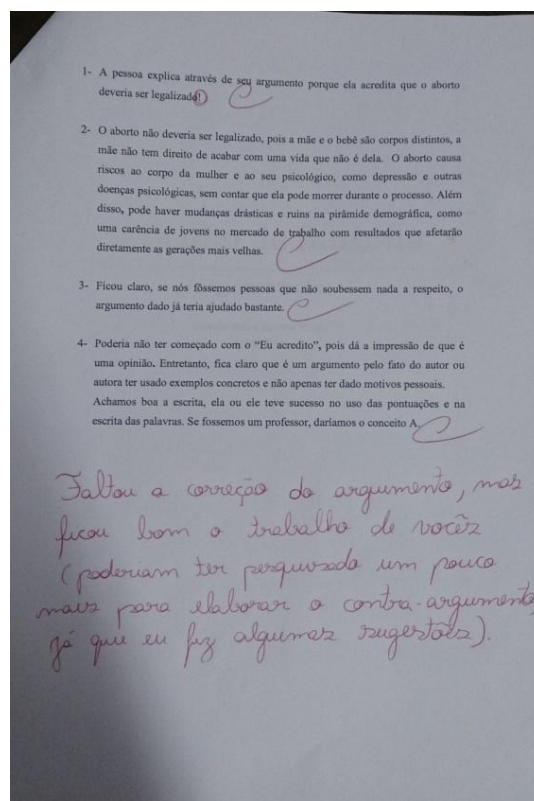 1- A pessoa explica através de seu argumento porque ela acredita que o aborto
deveria ser legalizado!
2- O aborto não deveria ser legalizado, pois a mãe e o bebê são corpos distintos, a
mãe não tem direito de acabar com uma vida que não é dela. O aborto causa
riscos ao corpo da mulher e ao seu psicológico, como depressão e outras
doenças psicológicas, sem contar que ela pode morrer durante o processo. Além
disso, pode haver mudanças drásticas e ruins na pirâmide demográfica, como
uma carência de jovens no mercado de trabalho com resultados que afetarão
diretamente as gerações mais velhas.
3- Ficou claro, se nós fôssemos pessoas que não soubessem nada a respeito, o
argumento dado já teria ajudado bastante.
4- Poderia não ter começado com o “Eu acredito”, pois dá a impressão de que é
uma opinião. Entretanto, fica claro que é um argumento pelo fato do autor ou
autora ter usado exemplos concretos e não apenas ter dado motivos pessoais.
Achamos boa a escrita, ela ou ele teve sucesso no uso das pontuações e na
escrita das palavras. Se fossemos um professor, daríamos o conceito A.
Faltou a correção do argumento, mas
ficou bom o trabalho de vocês
(poderiam ter pesquisado um pouco
mais para elaborar o contra-argumento,
já que eu fiz algumas sugestões).